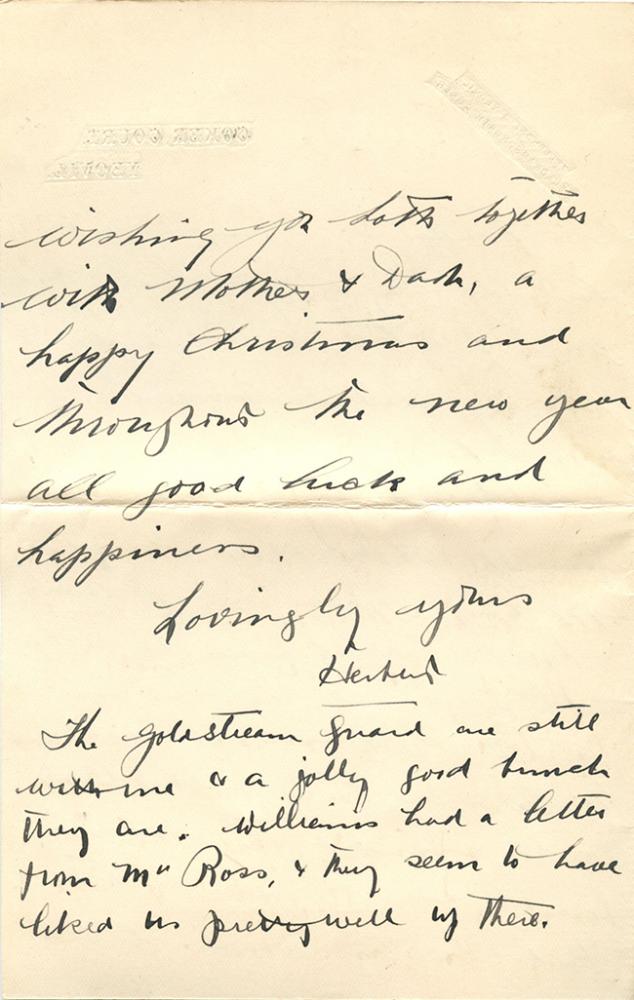 wishing you both together
with Mother & Dad, a
happy Christmas and
throughout the new year
all good luck and
happiness.
Lovingly yours
Herbert
The Goldstream Guard are still
with me & a jolly good bunch
they are. Williams had a letter
from Mrs Ross, & they seem to have
liked us pretty well up there.